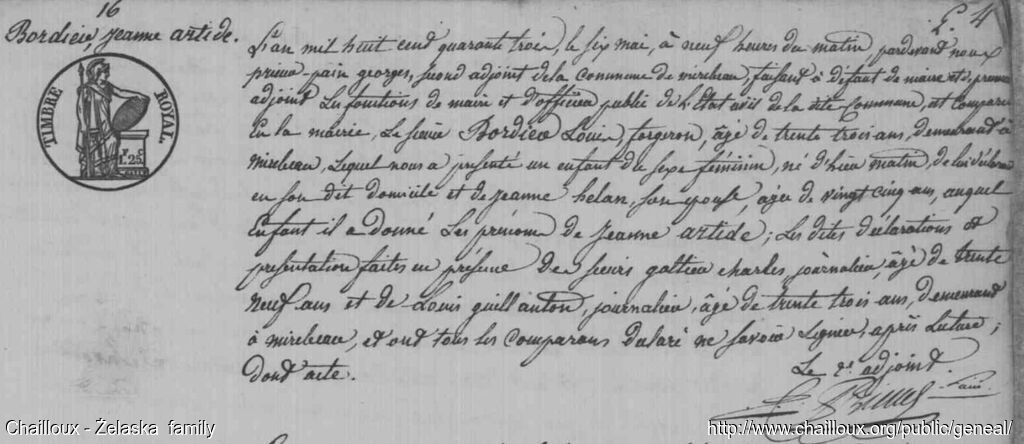 16
Bordieu, Jeanne artide.
TIMBRE ROYAL.
1.25.
L'an mil huit cent quarante trois, le six mai, à neuf heures du matin pardevant nous
prieur-pain georges, second adjoint de la Commune de mirebeau, faisant à défaut de maire et de premier
adjoint Les fonctions de maire et d'officier public de l'État civil de la dite Commune, est comparu
En la mairie, Le sieur Bordieu Louis, forgeron, âgé de trente trois ans, demeurant à
mirebeau, Lequel nous a présenté un enfant du sexe féminin, né d'hier matin, de lui déclarant
en son dit domicile et de Jeanne helan, son épouse, âgée de vingt cinq ans, auquel
Enfant il a donné Les prénoms de Jeanne artide; Les dites déclarations et
présentation faites en présence De sieurs gallien charles, journalier, âgé de trente
neuf ans et de Louis guill'anton, journalier, âgé de trente trois ans, demeurant
à mirebeau, et ont tous les comparans Déclaré ne savoir signer, après Lecture;
dont acte.
Le 2e. adjoint.
Chailloux - Żelaska family
http://www.chailloux.org/public/geneal/